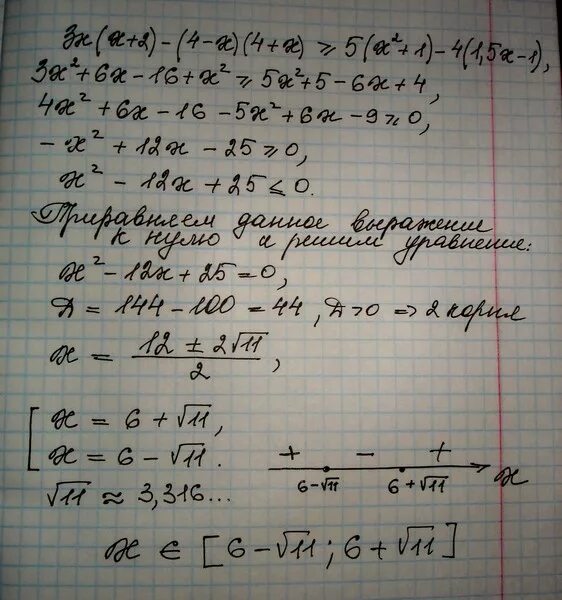 3x(x+2)-(4-x)(4+x) ⩾ 5(x²+1)-4(1,5x-1),
3x²+6x-16+x² ⩾ 5x²+5-6x+4,
4x²+6x-16-5x²+6x-9⩾0,
-x²+12x-25⩾0,
x²-12x+25⩽0.
Приравняем данное выражение
к нулю и решим уравнение:
x²-12x+25=0,
Д=144-100=44, Д>0 ⇒ 2 корня
x = (12 ± 2√11)/2,
[ x = 6+√11,
x = 6-√11.
+ - +
6-√11 6+√11 x
√11 ≈ 3,316...
x ∈ [6-√11; 6+√11]